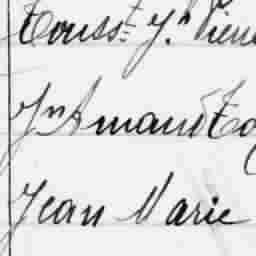 Touss.t J.n Pierr
J.n Amand To
Jean Marie